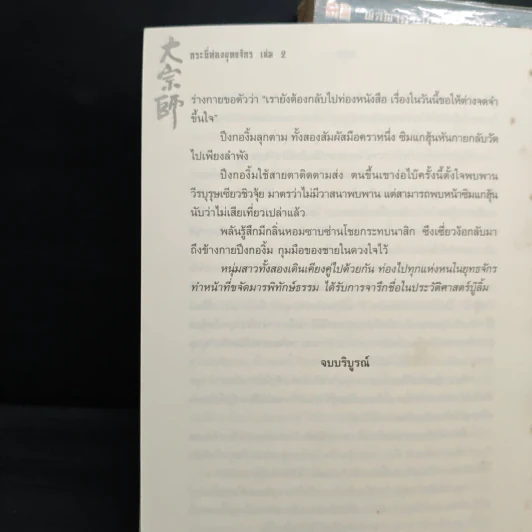 大宗師
กระบี่ท่องยุทธจักร เล่ม 2
ร่างกายขอตัวว่า "เรายังต้องกลับไปท่องหนังสือ เรื่องในวันนี้ขอให้ต่างจดจำ
ขึ้นใจ"
ปึงกองิ้มลุกตาม ทั้งสองสัมผัสมือคราหนึ่ง ซิมแกฮุ้นหันกายกลับวัด
ไปเพียงลำพัง
ปึงกองิ้มใช้สายตาติดตามส่ง ตนขึ้นเขาง่อไบ๊ครั้งนี้ตั้งใจพบพาน
วีรบุรุษเซียวชิวจุ้ย มาตรว่าไม่มีวาสนาพบพาน แต่สามารถพบหน้าซิมแกฮุ้น
นับว่าไม่เสียเที่ยวเปล่าแล้ว
พลันรู้สึกมีกลิ่นหอมซาบซ่านโชยกระทบนาสิก ซึงเซี่ยวง้อกลับมา
ถึงข้างกายปึงกองิ้ม กุมมือของชายในดวงใจไว้
หนุ่มสาวทั้งสองเดินเคียงคู่ไปด้วยกัน ท่องไปทุกแห่งหนในยุทธจักร
ทำหน้าที่ขจัดมารพิทักษ์ธรรม ได้รับการจารึกชื่อในประวัติศาสตร์บู๊ลิ้ม
จบบริบูรณ์